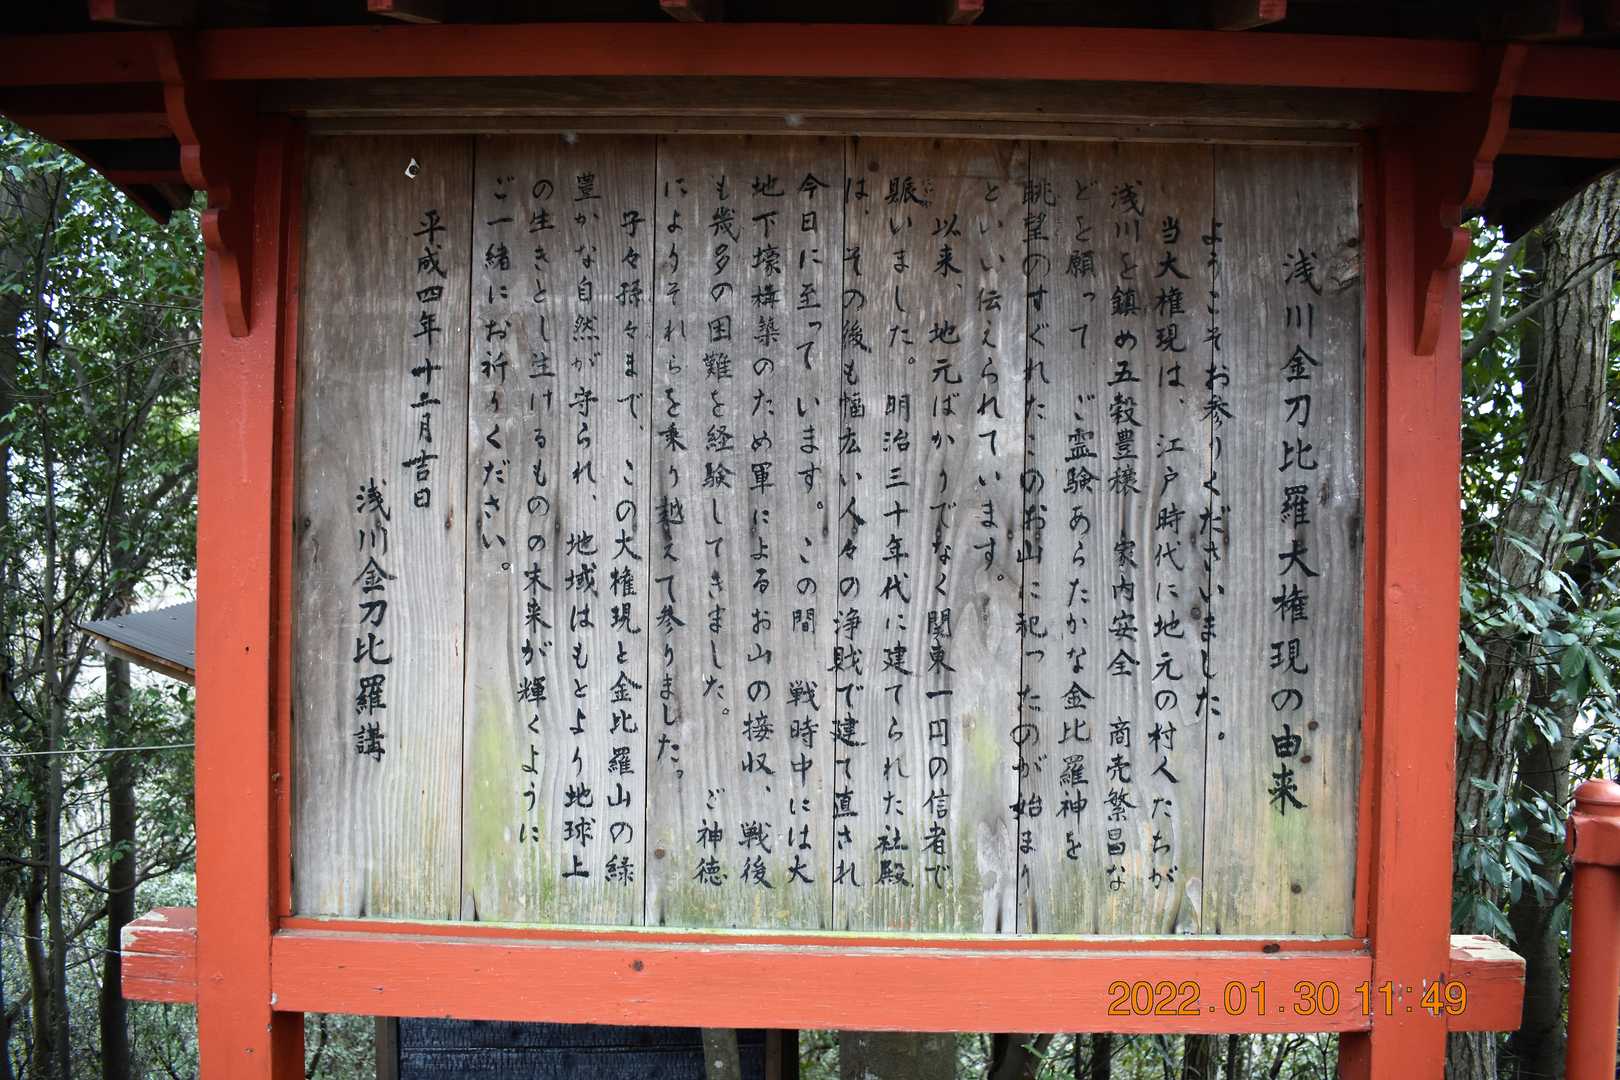 浅川金刀比羅大権現の由来
ようこそお参りくださいました。
当大権現は、江戸時代に地元の村人たちが
浅川を鎮め五穀豊穣 家内安全 商売繁昌な
どを願って ご霊験あらたかな金比羅神を
眺望のすぐれたこのお山に祀ったのが始まり
といい伝えられています。
以来、地元ばかりでなく関東一円の信者で
賑いました。明治三十年代に建てられた社殿
は、その後も幅広い人々の浄財で建て直され
今日に至っています。この間 戦時中には大
地下壕構築のため軍によるお山の接収、戦後
も幾多の困難を経験してきました。 ご神徳
によりそれらを乗り越えて参りました。
子々孫々まで、この大権現と金比羅山の緑
豊かな自然が守られ、地域はもとより地球上
の生きとし生けるものの末来が輝くように
ご一緒にお祈りください。
平成四年十二月吉日
浅川金刀比羅講
2022.01.30 11:49